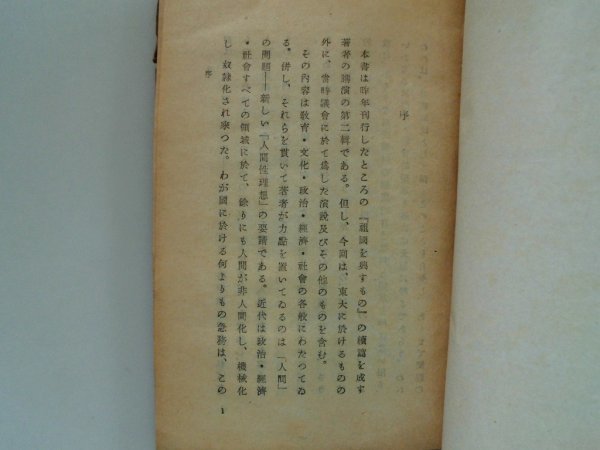 序
本書は昨年刊行したところの『祖國を興すもの』の續篇を成す
著者の講演の第二輯である。但し、今回は、東大に於けるものの
外に、當時議會に於て爲した演説及びその他のものを含む。
その内容は敎育・文化・政治・經濟・社會の各般にわたつてゐ
る。併し、それらを貫いて著者が力點を置いてゐるのは「人間」
の問題――新しい「人間性理想」の要請である。近代は政治・經濟
・社會すべての領域に於て、餘りにも人間が非人間化し、機械化
し、奴隷化され來つた。わが國に於ける何よりもの急務は、この
序
1